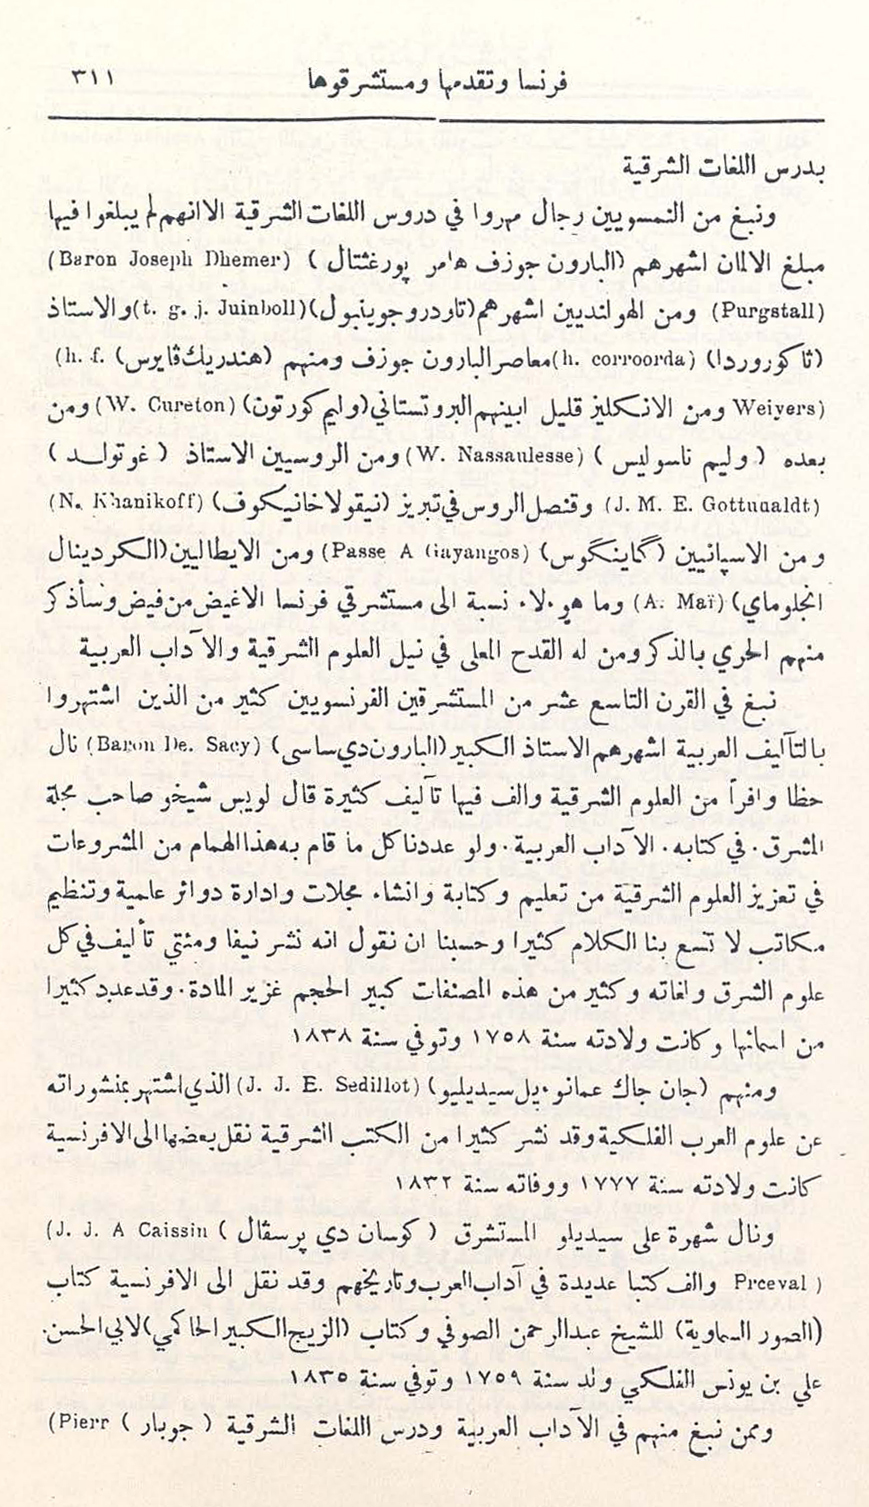 فرنسا وتقدمها ومستشرقوها ٣١١
بدرس اللغات الشرقية
ونبغ من النمسويين رجال مهروا في دروس اللغات الشرقية الا انهم لم يبلغوا فيها
مبلغ الالمان اشهرهم (البارون جوزف هامر پورغشتال) (Baron Joseph Dhemer
Purgstall) ومن الهولنديين اشهرهم (تاودرو جوينبول) (t. g. j. Juinboll) والاستاذ
(ثاكوروردا) (h. corroorda) معاصر البارون جوزف ومنهم (هندريك ڤايرس) (h. f.
Weiyers) ومن الانكليز قليل ابينهم البروتستاني (وليم كورتون) (W. Cureton) ومن
بعده (وليم ناسوليس) (W. Nassaulesse) ومن الروسيين الاستاذ (غوتوالد)
(J. M. E. Gottuualdt) وقنصل الروس في تبريز (نيقولا خانيكوف) (N. Khanikoff)
ومن الاسپانيين (گاينگوس) (Passe A Gayangos) ومن الايطاليين (الكردينال
انجلوماي) (A. Maï) وما هؤلاء نسبة الى مستشرقي فرنسا الا غيض من فيض وسأذكر
منهم الحري بالذكر ومن له القدح المعلى في نيل العلوم الشرقية والآداب العربية
نبغ في القرن التاسع عشر من المستشرقين الفرنسويين كثير من الذين اشتهروا
بالتآليف العربية اشهرهم الاستاذ الكبير (البارون دي ساسى) (Baron De. Sacy) نال
حظا وافراً من العلوم الشرقية والف فيها تآليف كثيرة قال لويس شيخو صاحب مجلة
المشرق. في كتابه. الآداب العربية. ولو عددنا كل ما قام به هذا الهمام من المشروعات
في تعزيز العلوم الشرقية من تعليم وكتابة وانشاء مجلات وادارة دوائر علمية وتنظيم
مكاتب لا تسع بنا الكلام كثيرا وحسبنا ان نقول انه نشر نيفا ومئتي تأليف في كل
علوم الشرق ولغاته وكثير من هذه المصنفات كبير الحجم غزير المادة. وقد عدد كثيرا
من اسمائها وكانت ولادته سنة ١٧٥٨ وتوفي سنة ١٨٣٨
ومنهم (جان جاك عمانوئيل سيديليو) (J. J. E. Sedillot) الذي اشتهر بمنشوراته
عن علوم العرب الفلكية وقد نشر كثيرا من الكتب الشرقية نقل بعضها الى الافرنسية
كانت ولادته سنة ١٧٧٧ ووفاته سنة ١٨٣٢
ونال شهرة على سيديلو المستشرق (كوسان دي پرسڤال) (J. J. A Caissin
Prceval) والف كتبا عديدة في آداب العرب وتاريخهم وقد نقل الى الافرنسية كتاب
(الصور السماوية) للشيخ عبدالرحمن الصوفي وكتاب (الزيج الكبير الحاكمي) لابي الحسن.
علي بن يونس الفلكي ولد سنة ١٧٥٩ وتوفي سنة ١٨٣٥
وممن نبغ منهم في الآداب العربية ودرس اللغات الشرقية (جوبار) (Pierr